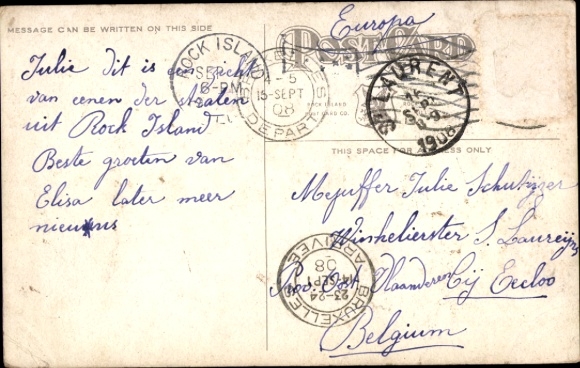 MESSAGE CAN BE WRITTEN ON THIS SIDE
Europa
POST CARD
ROCK ISLAND
SEP
6-PM
BRUXELLES
4-5
15-SEPT
08
DEPART
ROCK ISLAND
POST CARD CO.
ST LAURENT
1908
THIS SPACE FOR ADDRESS ONLY
Julie dit is een zicht
van eenen der straten
uit Rock Island
Beste groeten van
Elisa later meer
nieuws
Mejuffer Julie Schutijzer
Winkelierster S. Laureijns
Prov. Oost Vlaanderen Bij Eecloo
Belgium
BRUXELLES
23-24
14 SEPT
08
ARRIVEE